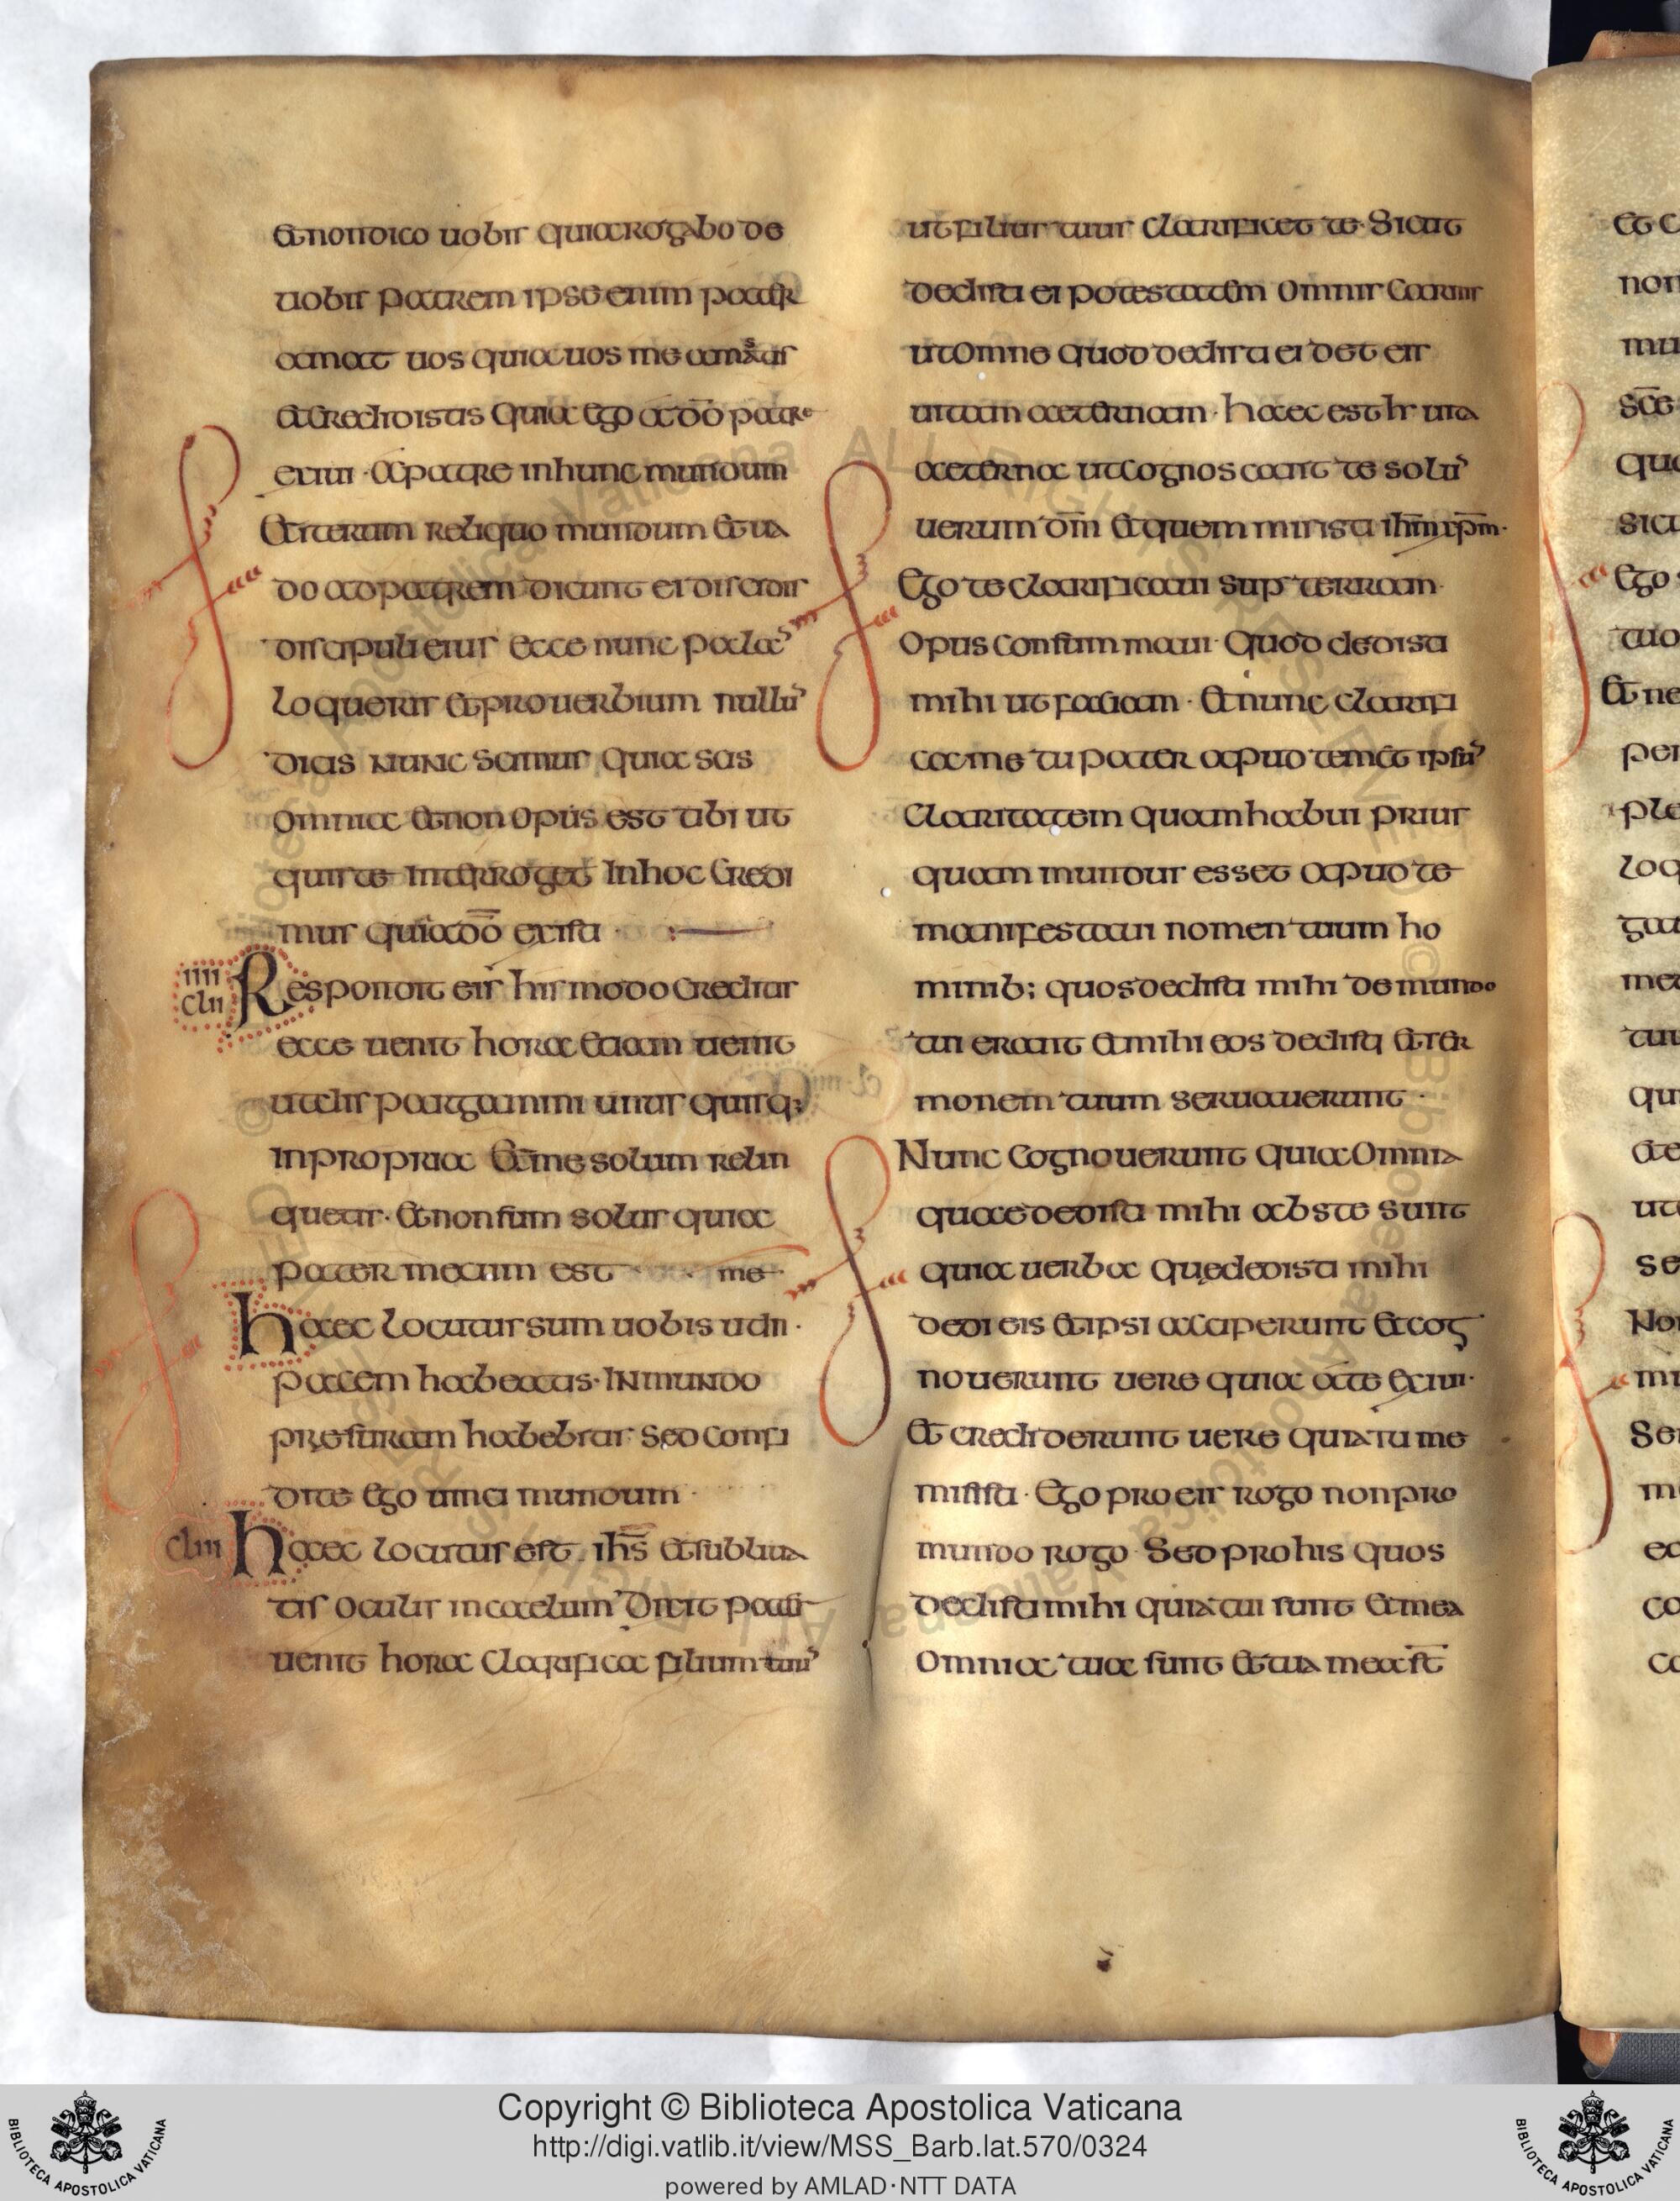 Et non dico uobis quia rogabo de
uobis patrem ipse enim pater
amat uos quia uos me amastis
Et credidistis quia ego a dō patre
exiui · A patre in hunc mundum
Et iterum reliquo mundum et ua
do ad patrem dicunt ei discipuli
discipuli eius ecce nunc pala
loqueris et prouerbium nullu
dicis nunc scimus quia scis
omnia et non opus est tibi ut
quis te interroget in hoc credi
mus quia a dō existi
iiii
clii
Respondit eis ihs modo creditis
ecce uenit hora et iam uenit
utdis pargamini unus quisq;
in propria et me solum relin
quetis · et non sum solus quia
pater mecum est me
haec locutus sum uobis ut in ·
pacem habeatis · in mundo
presuram habebitis · sed confi
dite ego uinci mundum
cliii
haec locutus est ihs et subliua
tis oculis in caelum dixit pater
uenit hora clarifica filium tuu
ut filius tuus clarificet te · Sicut
dedisti ei potestatem omnis carnis
ut omne quod dedisti ei det eis
uitam aeternam · haec est hr uita
aeterna ut cognoscant te solu
uerum dm̄ et quem misisti ihm xpm̄ ·
Ego te clarificaui sup terram
opus consummaui · Quod dedisti
mihi ut faciam · Et nunc clarifi
ca me tu pater apud temet ipsu
claritatem quam habui prius
quam mundus esset apud te
manifestaui nomen tuum ho
minib; quos dedisti mihi de mundo
tui erant et mihi eos dedisti et ser
monem tuum seruauerunt ·
Nunc cognouerunt quia omnia
quae dedisti mihi abs te sunt
quia uerba quę dedisti mihi
dedi eis et ipsi acciperunt et cog
nouerunt uere quia a te exiui ·
Et crediderunt uere quia tu me
misisti · Ego pro eis rogo non pro
mundo rogo Sed pro his quos
dedisti mihi quia tui sunt et mea
omnia tua sunt et tua mea st̄
Copyright © Biblioteca Apostolica Vaticana
http://digi.vatlib.it/view/MSS_Barb.lat.570/0324
powered by AMLAD·NTT DATA
BIBLIOTECA APOSTOLICA VATICANA
BIBLIOTECA APOSTOLICA VATICANA